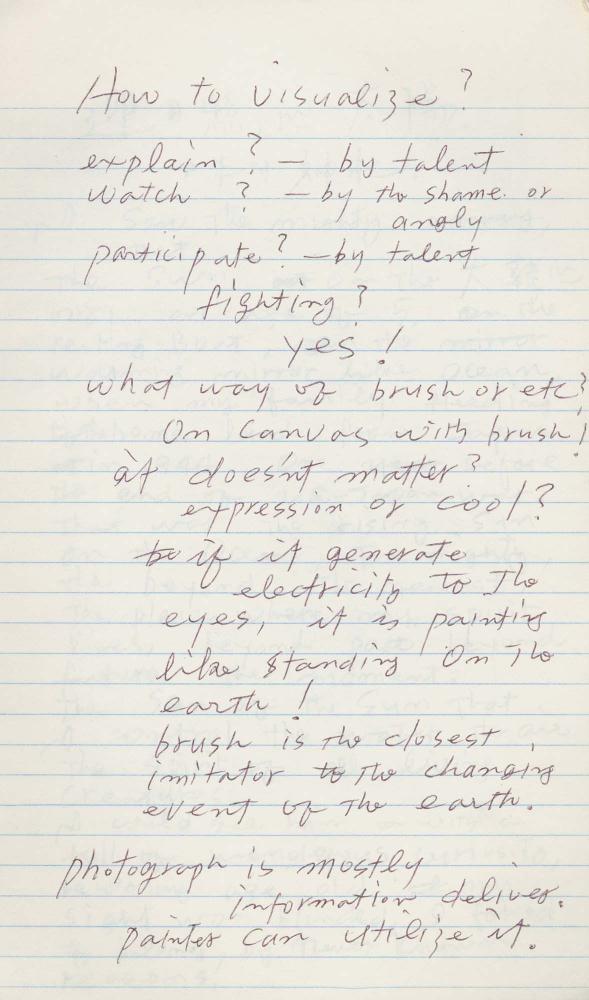 How to visualize?
explain? — by talent
watch ? — by the shame. or
angly
participate? — by talent
fighting?
yes!
what way of brush or etc?
On canvas with brush!
it doesn't matter?
expression or cool?
if it generate
electricity to the
eyes, it is painting
like standing on the
earth!
brush is the closest
imitator to the changing
event of the earth.
photograph is mostly
information deliver.
painter can utilize it.